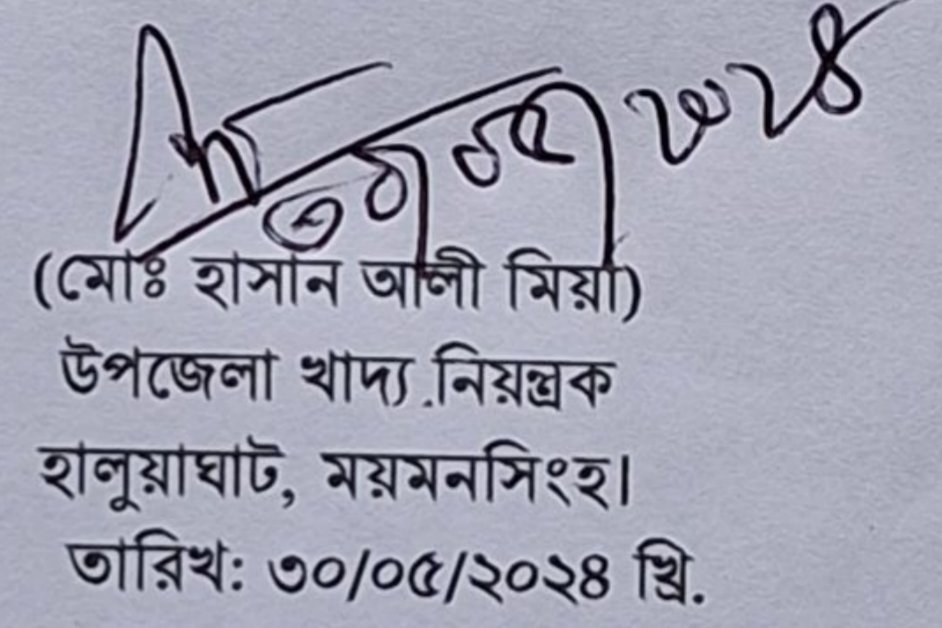 (মোঃ হাসান আলী মিয়া)
উপজেলা খাদ্য নিয়ন্ত্রক
হালুয়াঘাট, ময়মনসিংহ।
তারিখ: ৩০/০৫/২০২৪ খ্রি.